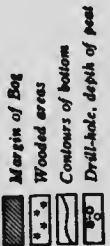 Margin of Bog
Wooded areas
Contours of bottom
Drill-hole, depth of peat